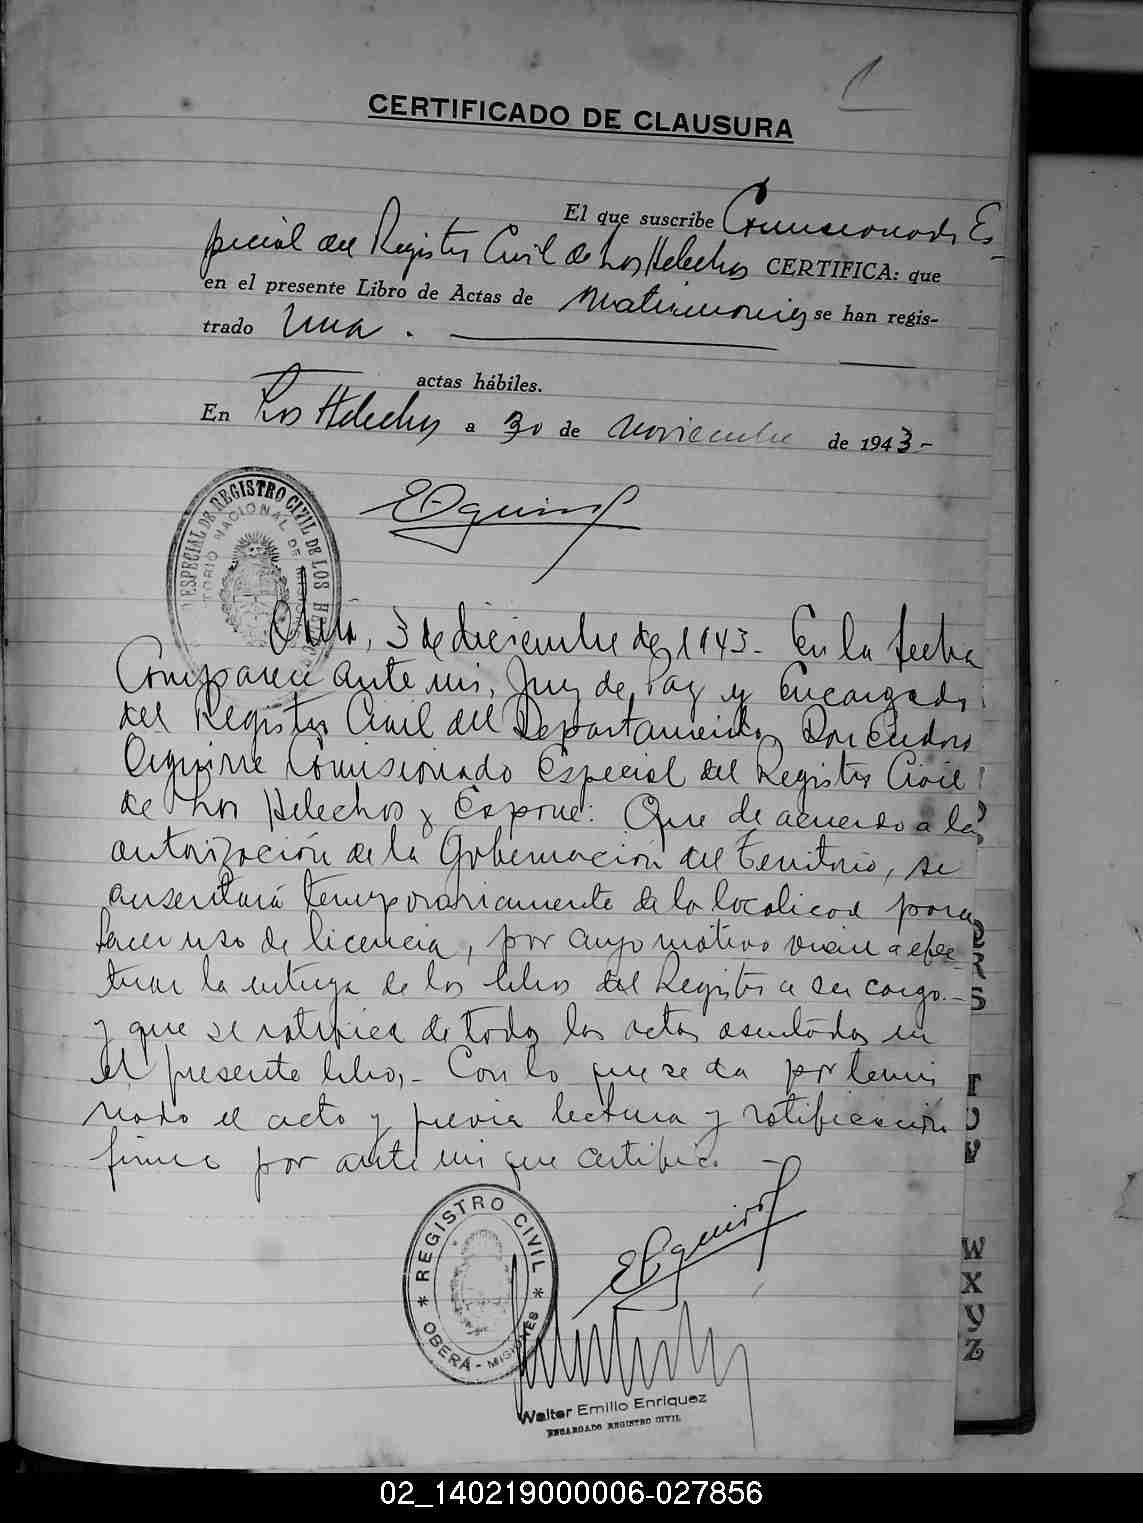 1
CERTIFICADO DE CLAUSURA
El que suscribe Comisionado Es-
pecial del Registro Civil de Los Helechos CERTIFICA: que
en el presente Libro de Actas de Matrimonios se han regis-
trado Una.
actas hábiles.
En Los Helechos a 30 de noviembre de 1943-
ESPECIAL DE REGISTRO CIVIL DE LOS
TORIO NACIONAL DE
Oberá, 3 de diciembre de 1943- En la fecha
Comparece ante mi, Juez de Paz y Encargado
del Registro Civil del Departamento, Don
Comisionado Especial del Registro Civil
de Los Helechos y Expone: Que de acuerdo a la
autorización de la Gobernación del Territorio, se
ausentará temporariamente de la localidad para
hacer uso de licencia, por cuyo motivo viene a efec-
tuar la entrega de los libros del Registro a su cargo.-
y que se ratifica de todas las actas asentadas en
el presente libro,- Con lo que se da por termi
nado el acto y previa lectura y ratificación
firma por ante mi que certifico.
REGISTRO CIVIL
OBERÁ - MISIONES
Walter Emilio Enriquez
ENCARGADO REGISTRO CIVIL
QRS
TUV
W
X
Y
Z
02_140219000006-027856